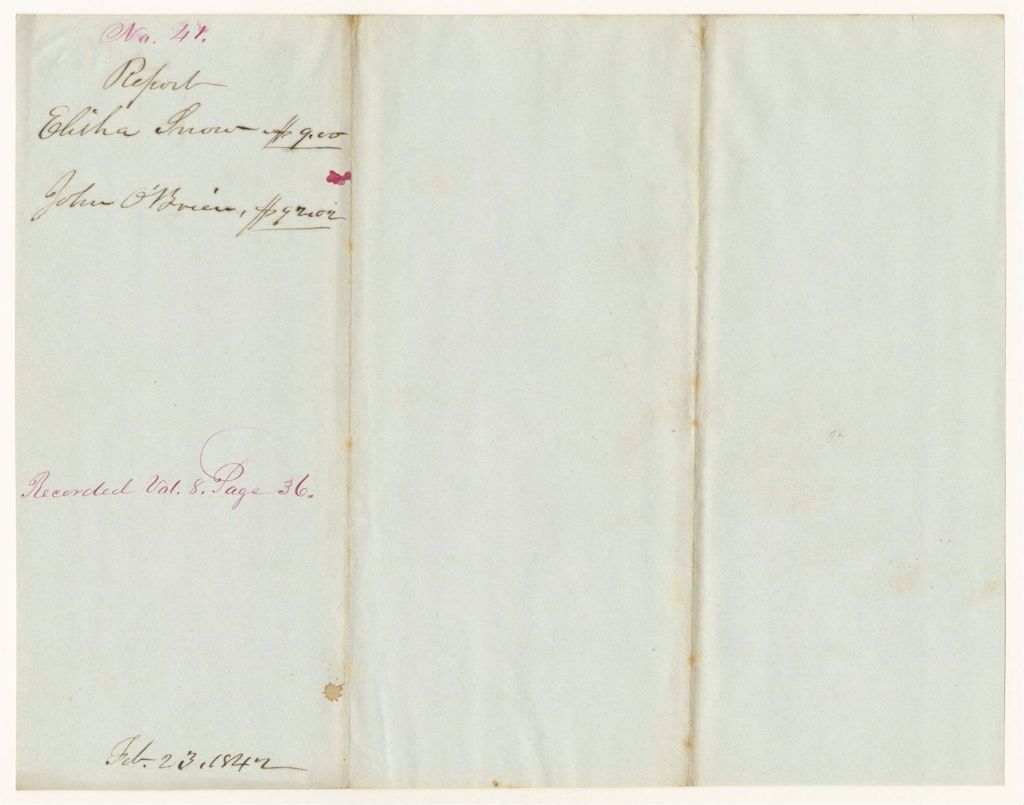 No. 41.
Report
Elisha Snow $9.00
John O'Brien, $92.02
Recorded Vol. 8. Page 36.
Feb. 23, 1842